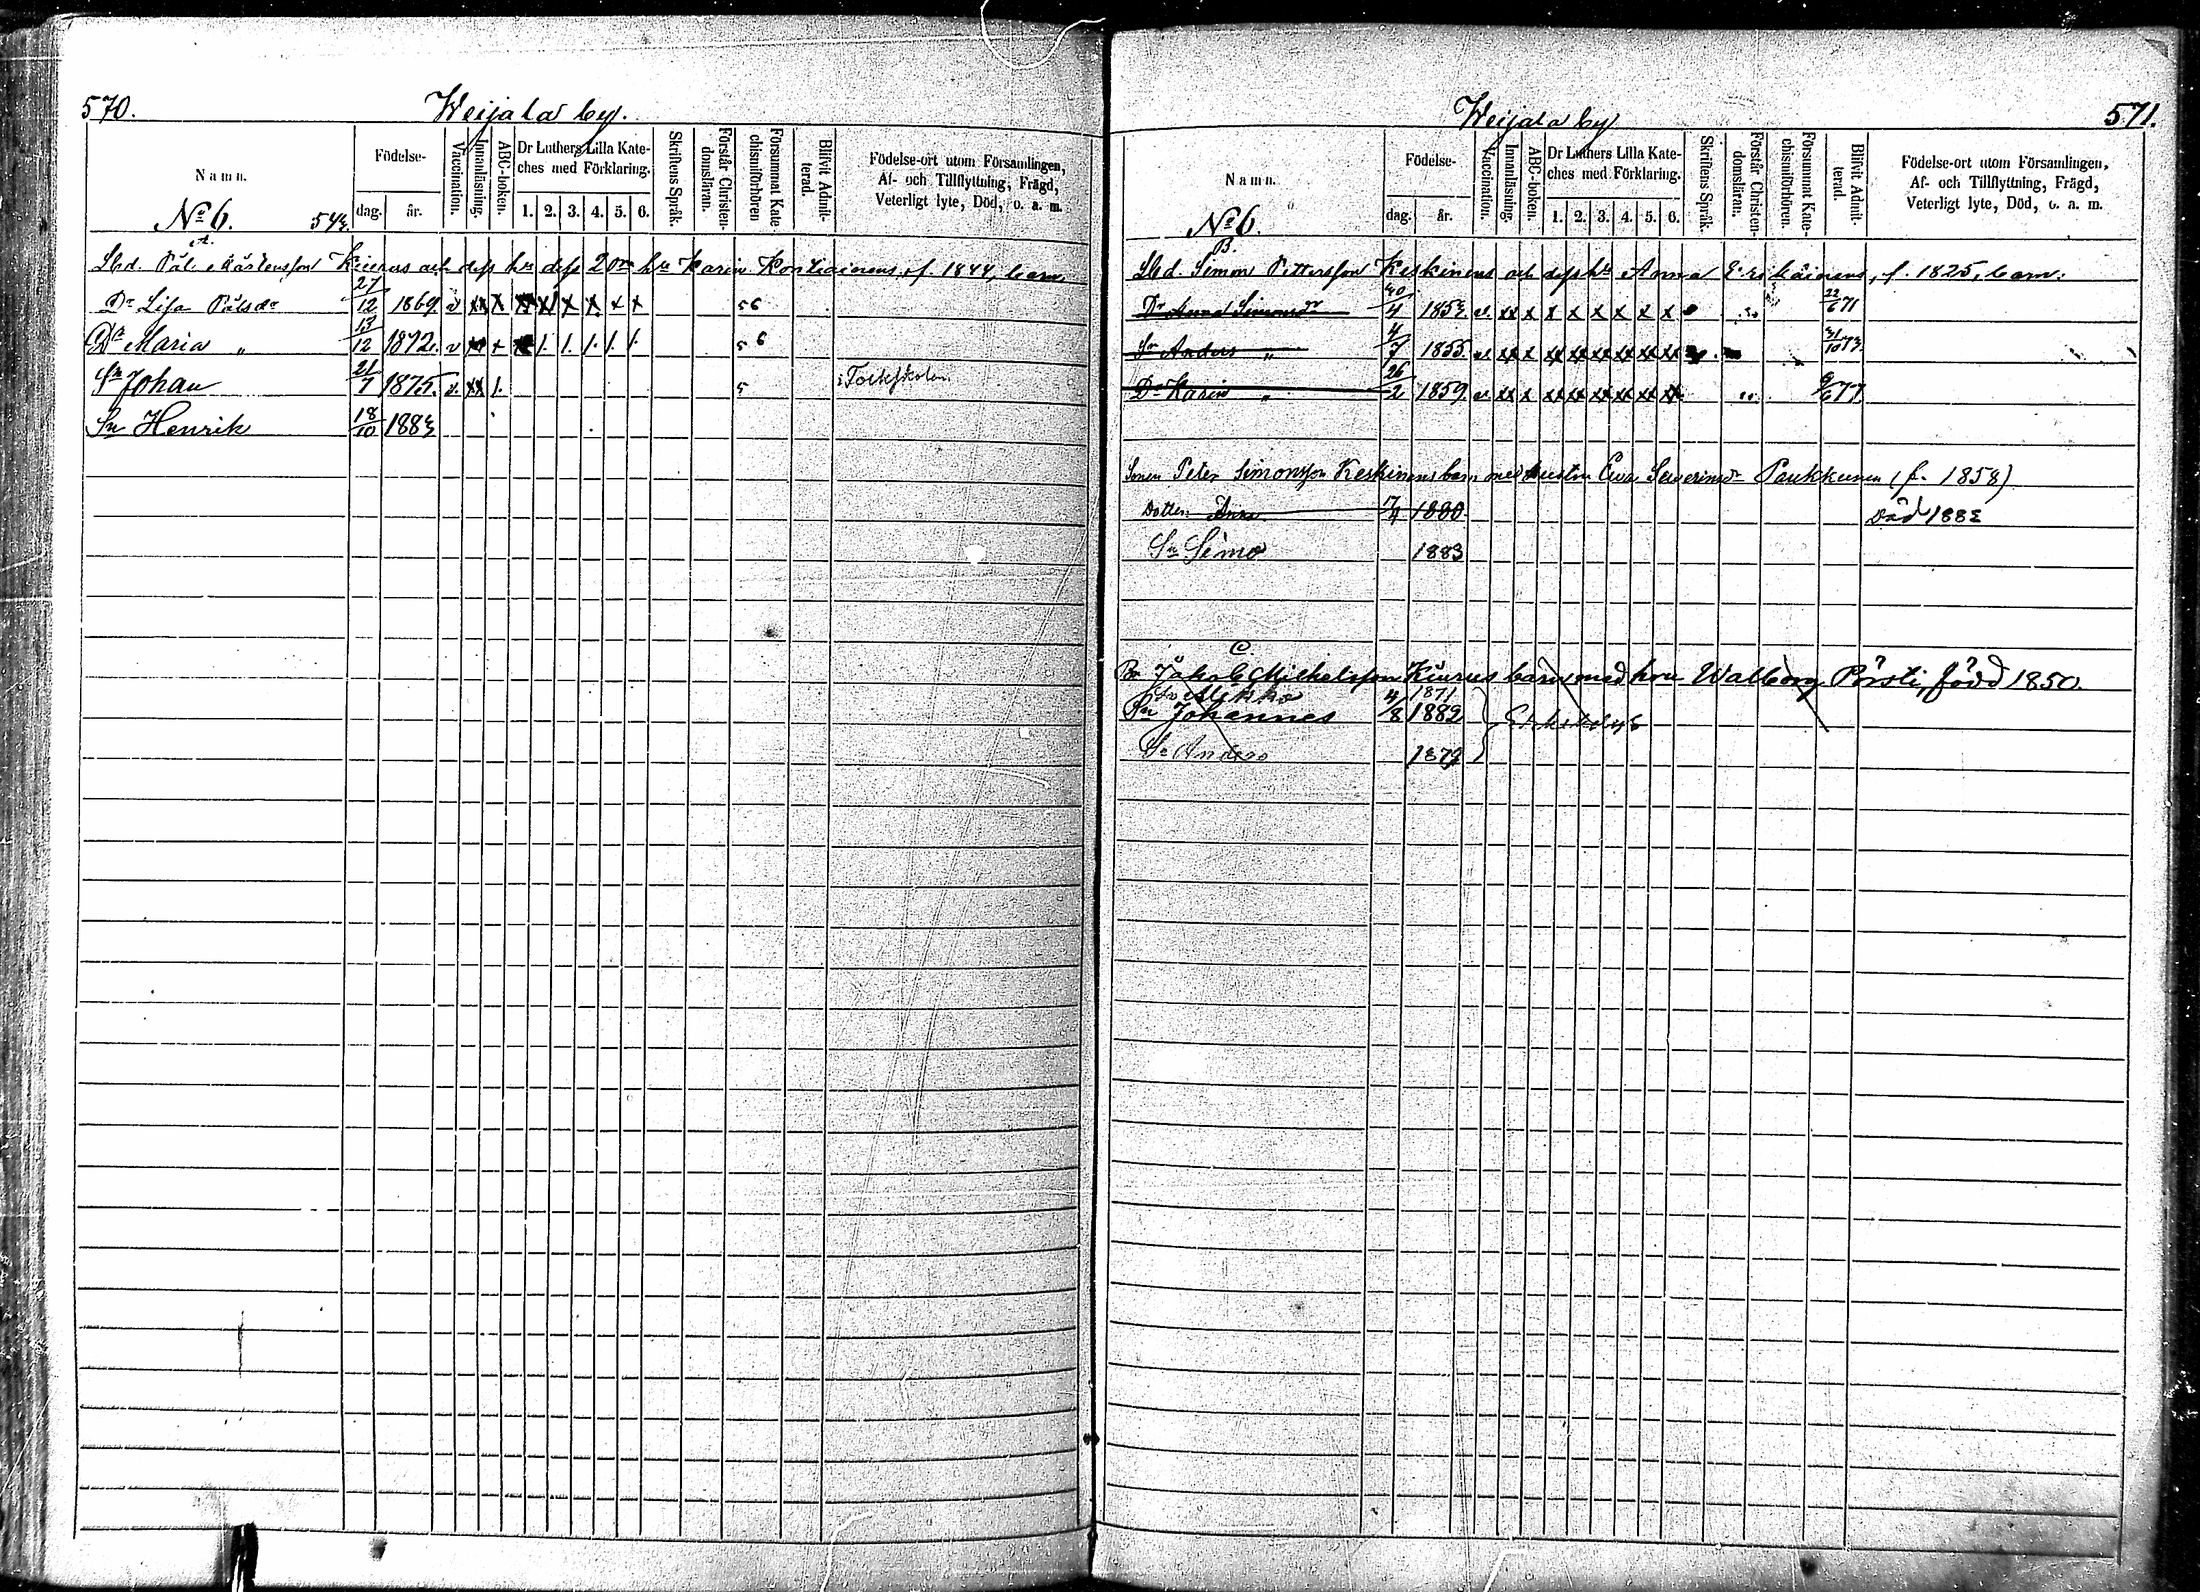 570.
Weijala by.
Namn.
Födelse-
dag.
år.
Vaccination.
Innanläsning.
ABC-boken.
Dr Luthers Lilla Kate-
ches med Förklaring.
1. 2. 3. 4. 5. 6.
Skriftens Språk.
Förstår Christen-
domsläran.
Försummat Kate-
chismiförhören
Blifvit Admit-
terad.
Födelse-ort utom Församlingen,
Af- och Tillflyttning, Frägd,
Veterligt lyte, Död, o. a. m.
No 6.
A.
Lbd. Pål Mårtensson Kiurus och dess hu dess 2dra hu Karin Kontiainens, f. 1844, barn
Dr Lisa Pålsdr 27/12 1869. v xx x xx x x x x x 5 6
Dr Maria „ 13/12 1872. v xx x 1. 1. 1. 1. 1. 5 6
Sn Johan 21/7 1875. v. xx 1. 5 i Folkskolan
Sn Henrik 18/10 1883
571.
Weijala by
Namn.
Födelse-
dag.
år.
Vaccination.
Innanläsning.
ABC-boken.
Dr Luthers Lilla Kate-
ches med Förklaring.
1. 2. 3. 4. 5. 6.
Skriftens Språk.
Förstår Christen-
domsläran:
Försummat Kate-
chismiförhören.
Blifvit Admit-
terad.
Födelse-ort utom Församlingen,
Af- och Tillflyttning, Frägd,
Veterligt lyte, Död, o. a. m.
No 6.
B.
Lbd. Simon Pettersson Keskinens och dess hu Anna Eriskäinens, f. 1825, barn:
Dr Anna Simonsdr 30/4 1853 v. xx x x x x x x x 22/6 71
Sn Anders „ 4/7 1855 v. xx x xx xx xx xx xx xx 31/10 73.
Dr Karin „ 26/2 1859. v. xx x xx xx xx xx xx xx 9/6 77
Sonen Peter Simonsson Keskinens barn med hustru Eva Severinsdr Paukkunen (f. 1858)
Dotter: Anna 7/4 1880 Död 1882
Sn Simo 1883
C
Br Jakob Mikkelsson Kiurus barn med hru Walborg Pörsti, född 1850.
Sn Mikko 1871
Sn Johannes 4/8 1882
Sn Anders 1879